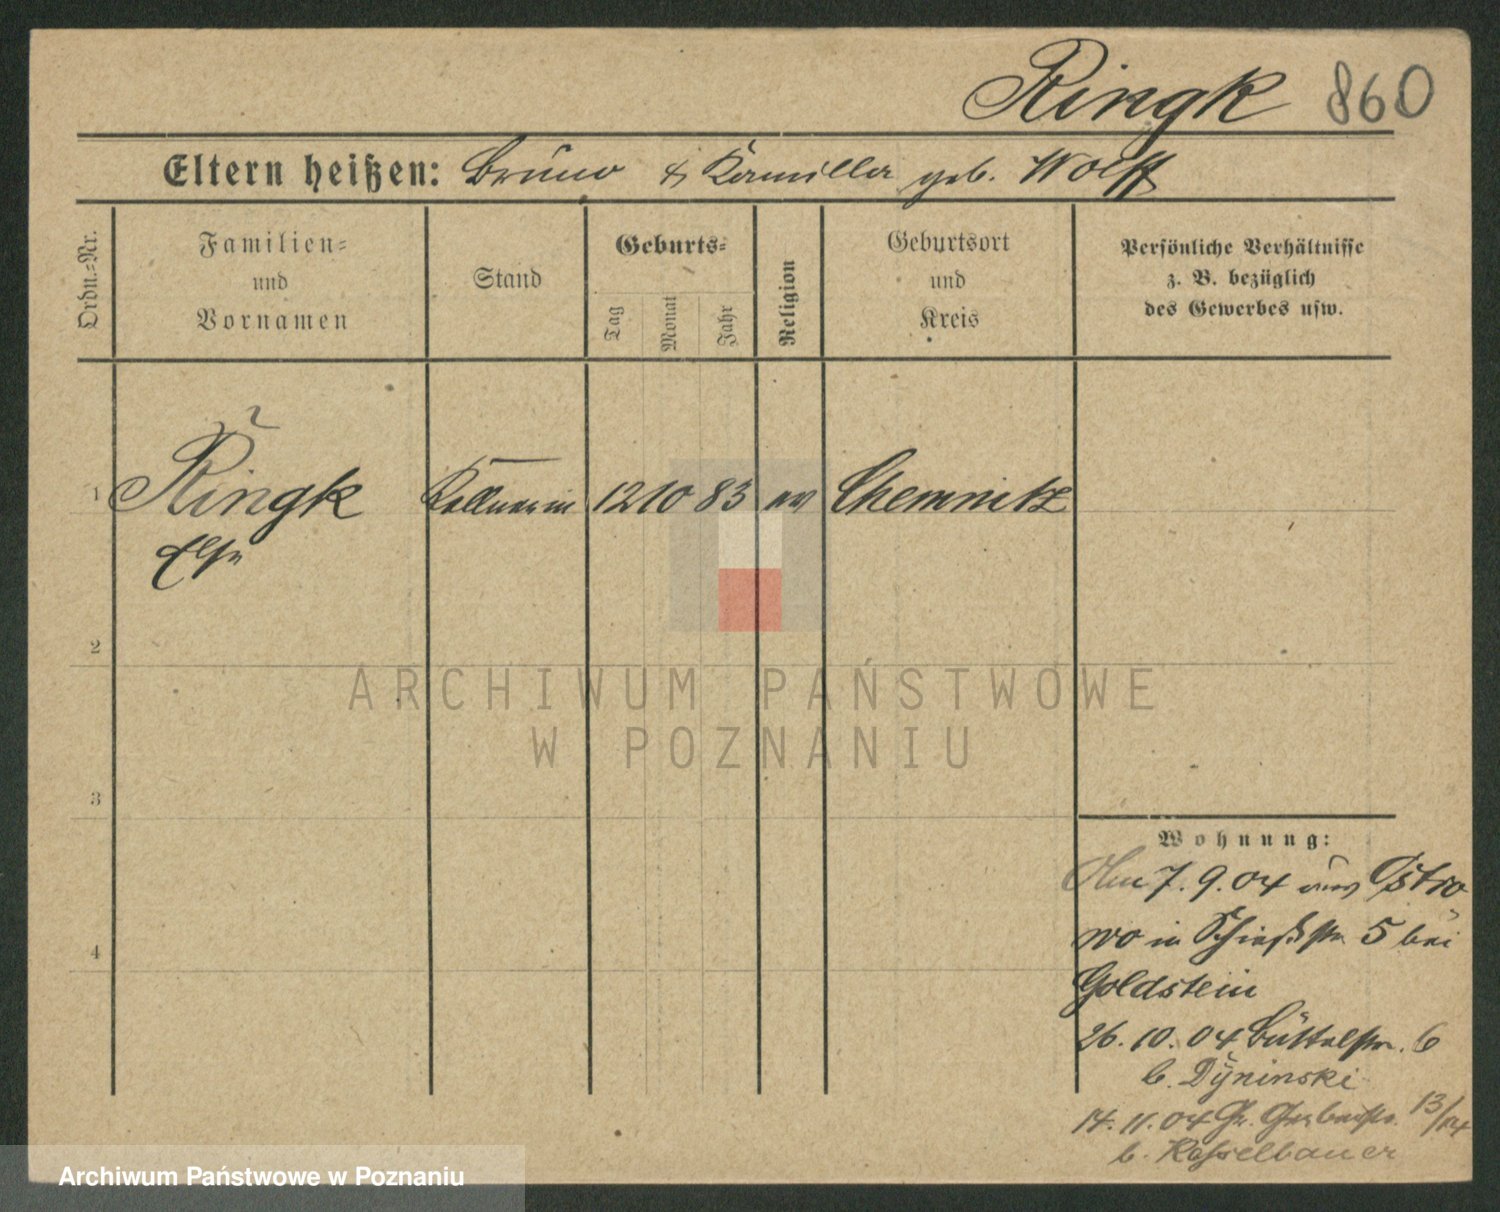 Ringk 860
Eltern heißen: Bruno & Kamilla geb. Wolff
Ordn.-Nr.
Familien-
und
Vornamen
Stand
Geburts-
Tag
Monat
Jahr
Religion
Geburtsort
und
Kreis
Persönliche Verhältnisse
z. B. bezüglich
des Gewerbes usw.
1 Ringk Kellnerin 12 10 83 ev Chemnitz
Else
2
3
4
ARCHIWUM PAŃSTWOWE
W POZNANIU
Wohnung:
7. 9. 04 aus Ostro
wo in Schießstr 5 bei
Goldstein
26. 10. 04 Büttelstr. 6
b. Dyninski
14. 11. 04 Gr. Gerberstr. 13/14
b. Kesselbauer
Archiwum Państwowe w Poznaniu